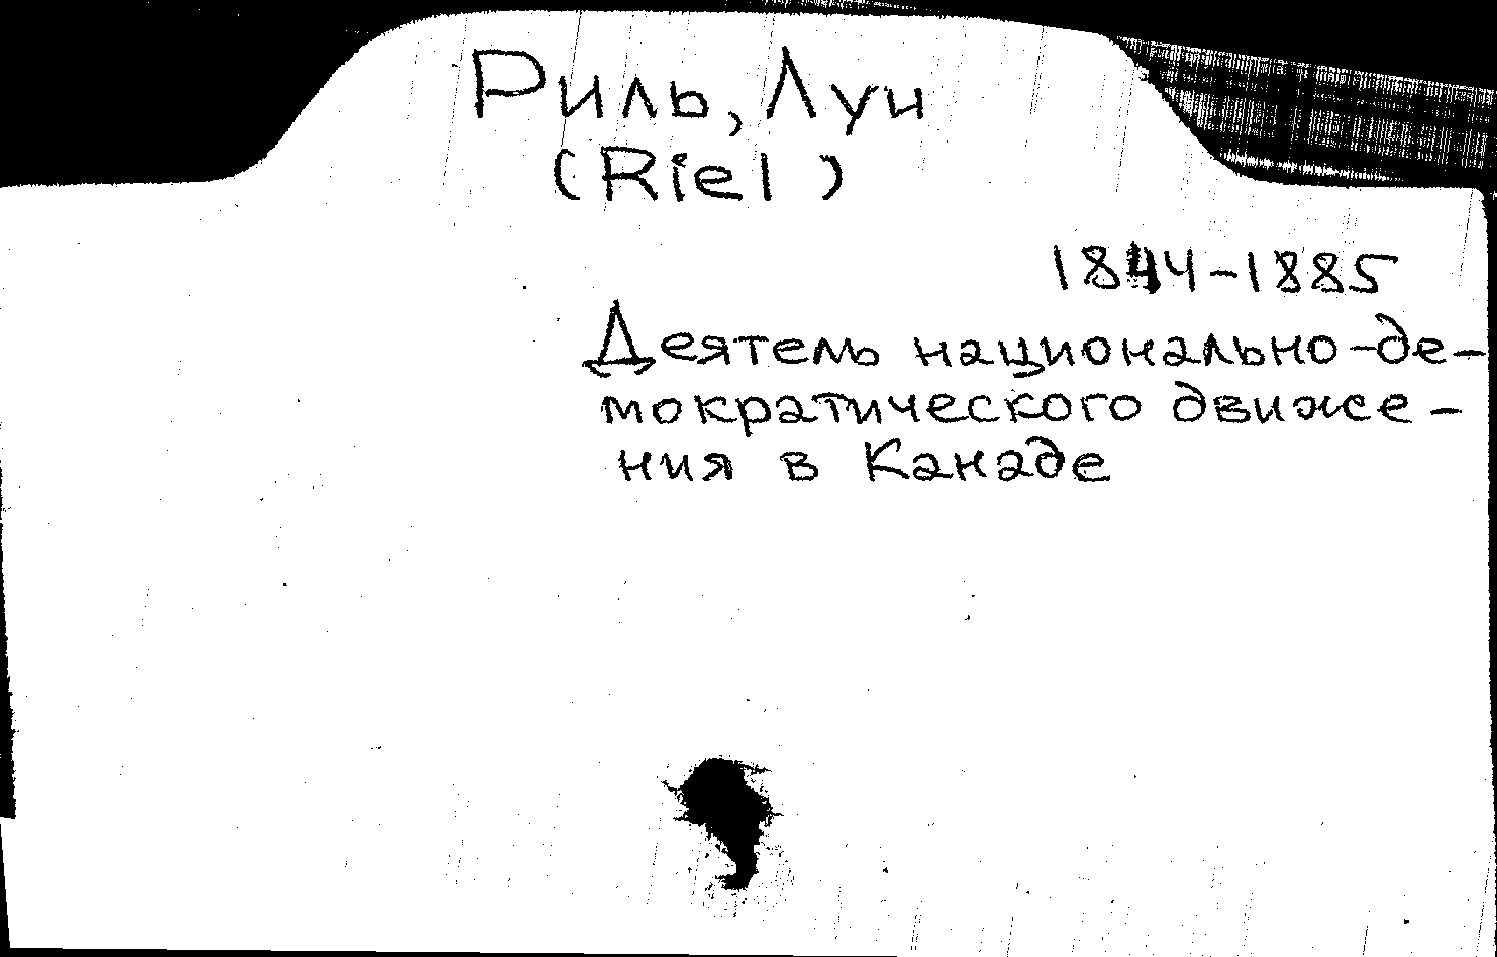 Риль, Луи
(Riel)
1844-1885
Деятель национально-де-
мократического движе-
ния в Канаде